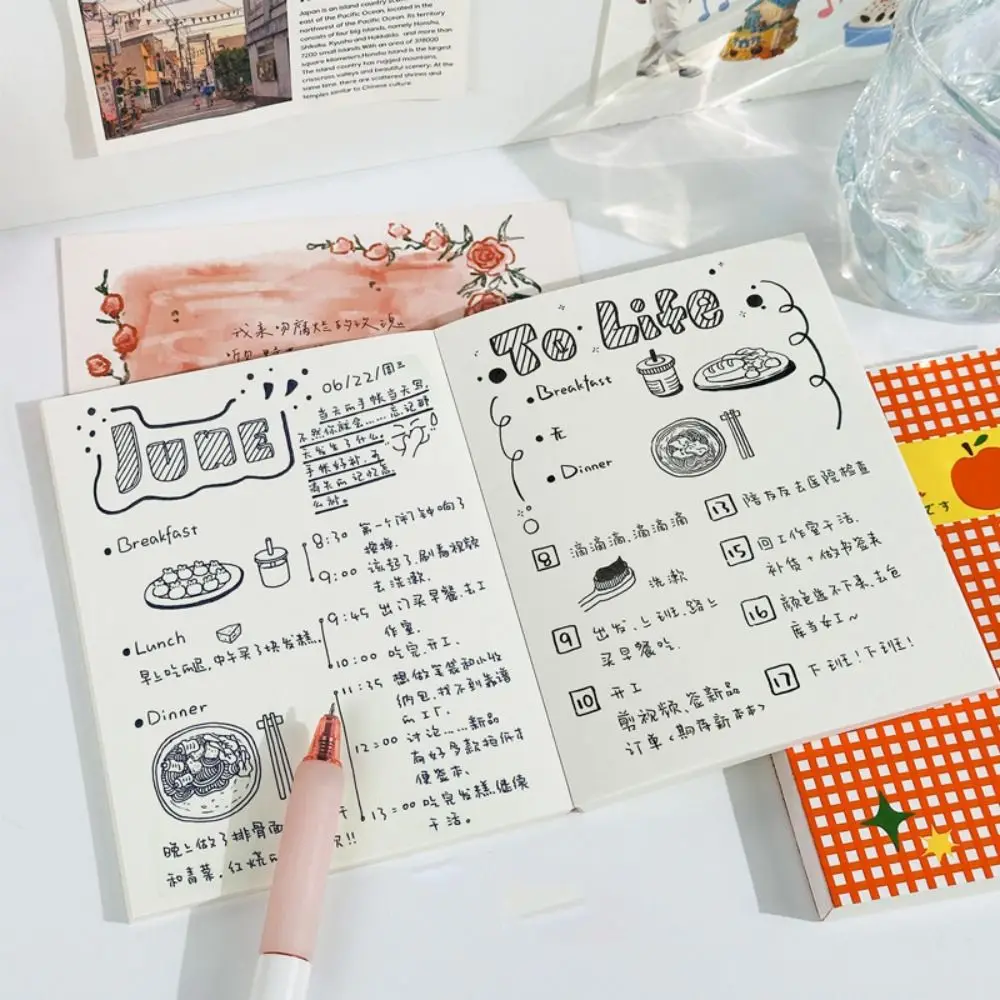 Japan is an island country
east of the Pacific Ocean, located in the
northwest of the Pacific Ocean. Its territory
consists of four big islands, namely Honshu,
Shikoku, Kyushu and Hokkaido, and more than
7200 small islands. With an area of 378000
square kilometers, Honshu Island is the largest.
The island country has rugged mountains,
crisscross valleys and beautiful scenery. At the
same time, there are scattered shrines and
temples similar to Chinese culture.
我来吻腐烂的玫瑰
June
06/22/周三
当天的手帐当天写,
不然你就会……忘记那
天发生了什么。
手帐好补,可
消失的记忆怎
么补。
Breakfast
Lunch
早上吃的迟,中午买了块发糕。
Dinner
晚上做了排骨面
和青菜,红烧的
!!
8:30 第一个闹钟响了
按掉。
9:00 该起了,刷着视频
去洗漱。
9:45 出门买早餐,去工
作室。
10:00 吃完,开工。
11:35 想做笔袋和小收
纳包,找不到靠谱
的工厂。
12:00 讨论……新品
有好多款抱低本
便签本。
13:00 吃完发糕,继续
干活。
To Life
Breakfast
无
Dinner
8 滴滴滴,滴滴滴
洗漱
9 出发、上班,路上
买早餐吃.
10 开工
剪视频、签新品
订单<期待新本本>
13 陪友友去医院检查
15 回工作室干活.
补货+做书签表
16 颜色选不下来,去仓
库当女工~
17 下班!下班!
です